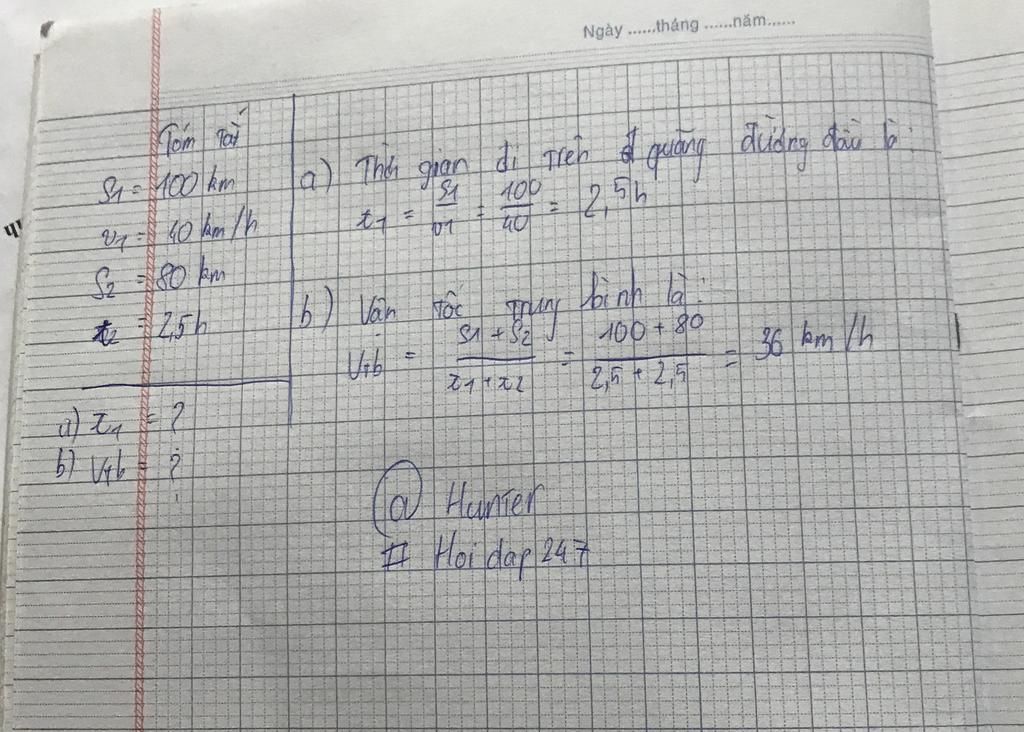 Ngày ......tháng ......năm......
Tóm tắt
S1 = 100 km
v1 = 40 km/h
S2 = 80 km
t2 = 2,5h
a) t1 = ?
b) Vtb = ?
a) Thời gian đi trên quãng đường đầu là:
t1 = S1/v1 = 100/40 = 2,5h
b) Vận tốc trung bình là:
Vtb = S1 + S2/t1 + t2 = 100 + 80/2,5 + 2,5 = 36 km/h
@ Hunter
# Hoi dap 247